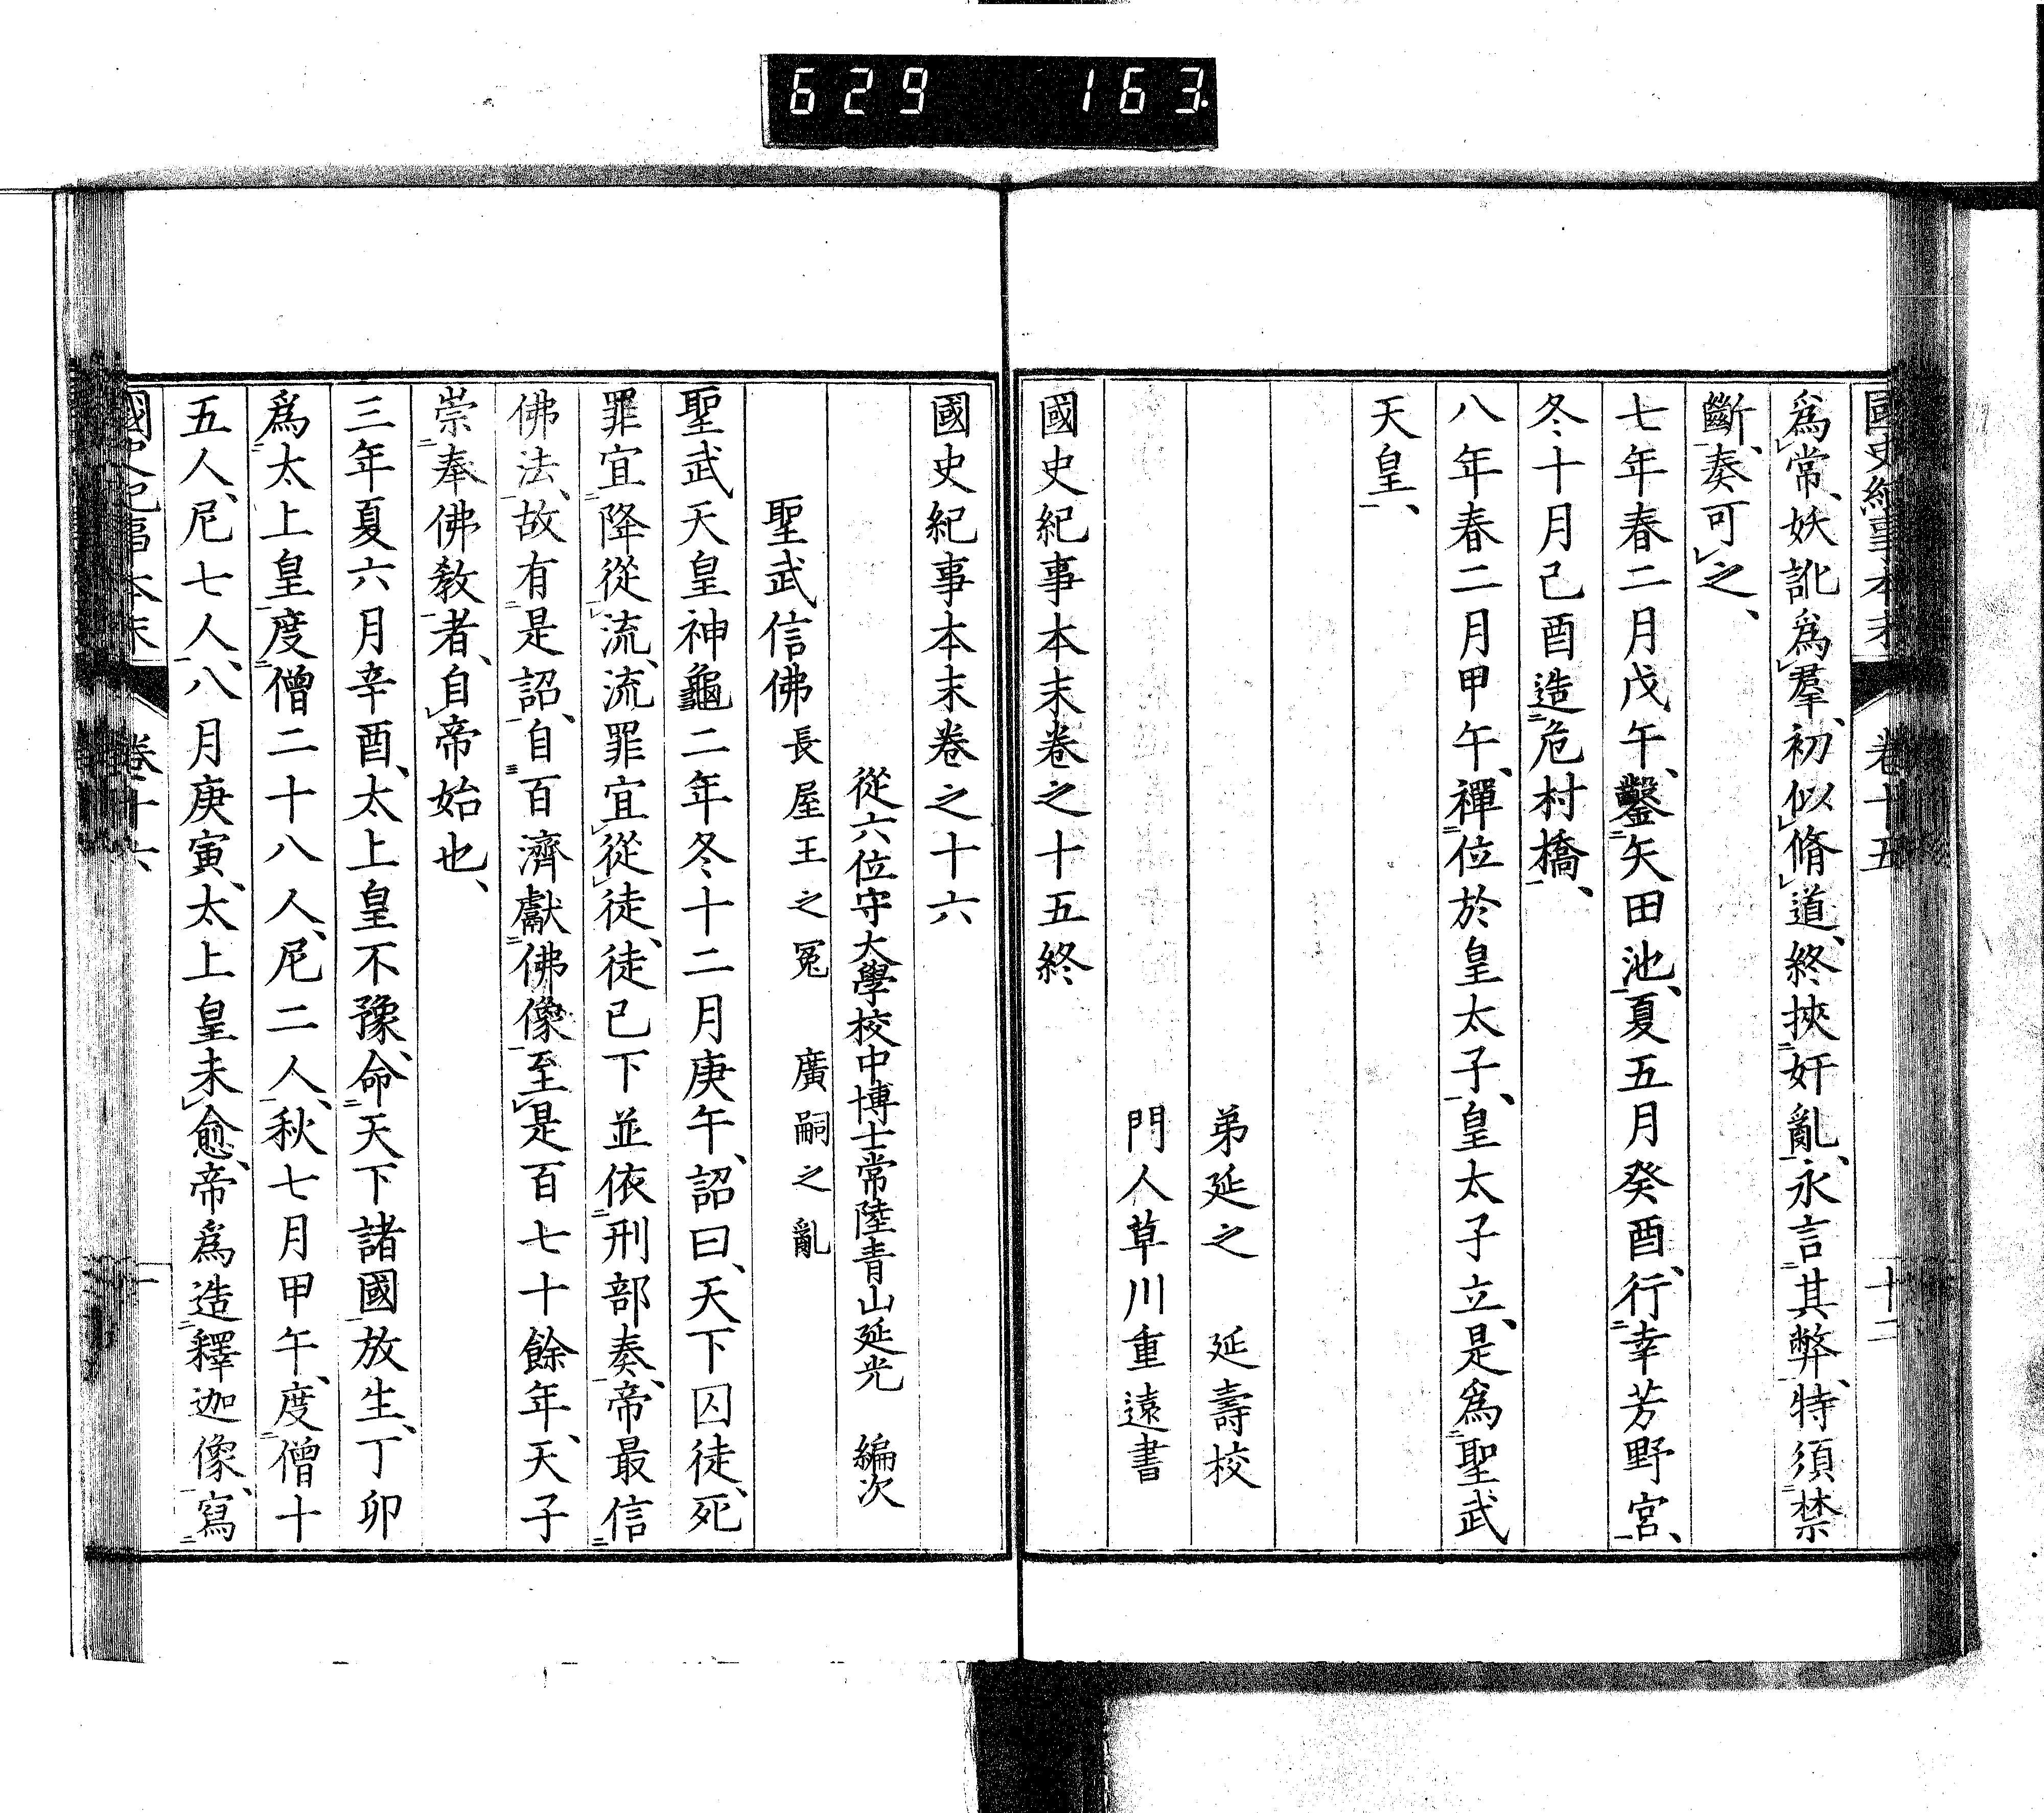 629 163
國史紀事本末 卷十五 十二
爲常、妖訛爲羣、初似脩道、終挾奸亂、永言其弊、特須禁
斷、奏可之、
七年春二月戊午、鑿矢田池、夏五月癸酉、行幸芳野宮、
冬十月己酉造危村橋、
八年春二月甲午、禪位於皇太子、皇太子立、是爲聖武
天皇、
弟延之 延壽校
門人草川重遠書
國史紀事本末卷之十五終
國史紀事本末卷之十六
從六位守大學校中博士常陸青山延光 編次
聖武信佛 長屋王之冤 廣嗣之亂
聖武天皇神龜二年冬十二月庚午、詔曰、天下囚徒、死
罪宜降從流、流罪宜從徒、徒已下並依刑部奏、帝最信
佛法、故有是詔、自百濟獻佛像至是百七十餘年、天子
崇奉佛敎者、自帝始也、
三年夏六月辛酉、太上皇不豫、命天下諸國放生、丁卯
爲太上皇度僧二十八人、尼二人、秋七月甲午、度僧十
五人、尼七人、八月庚寅、太上皇未愈、帝爲造釋迦像、寫
國史紀事本末 卷十六 一